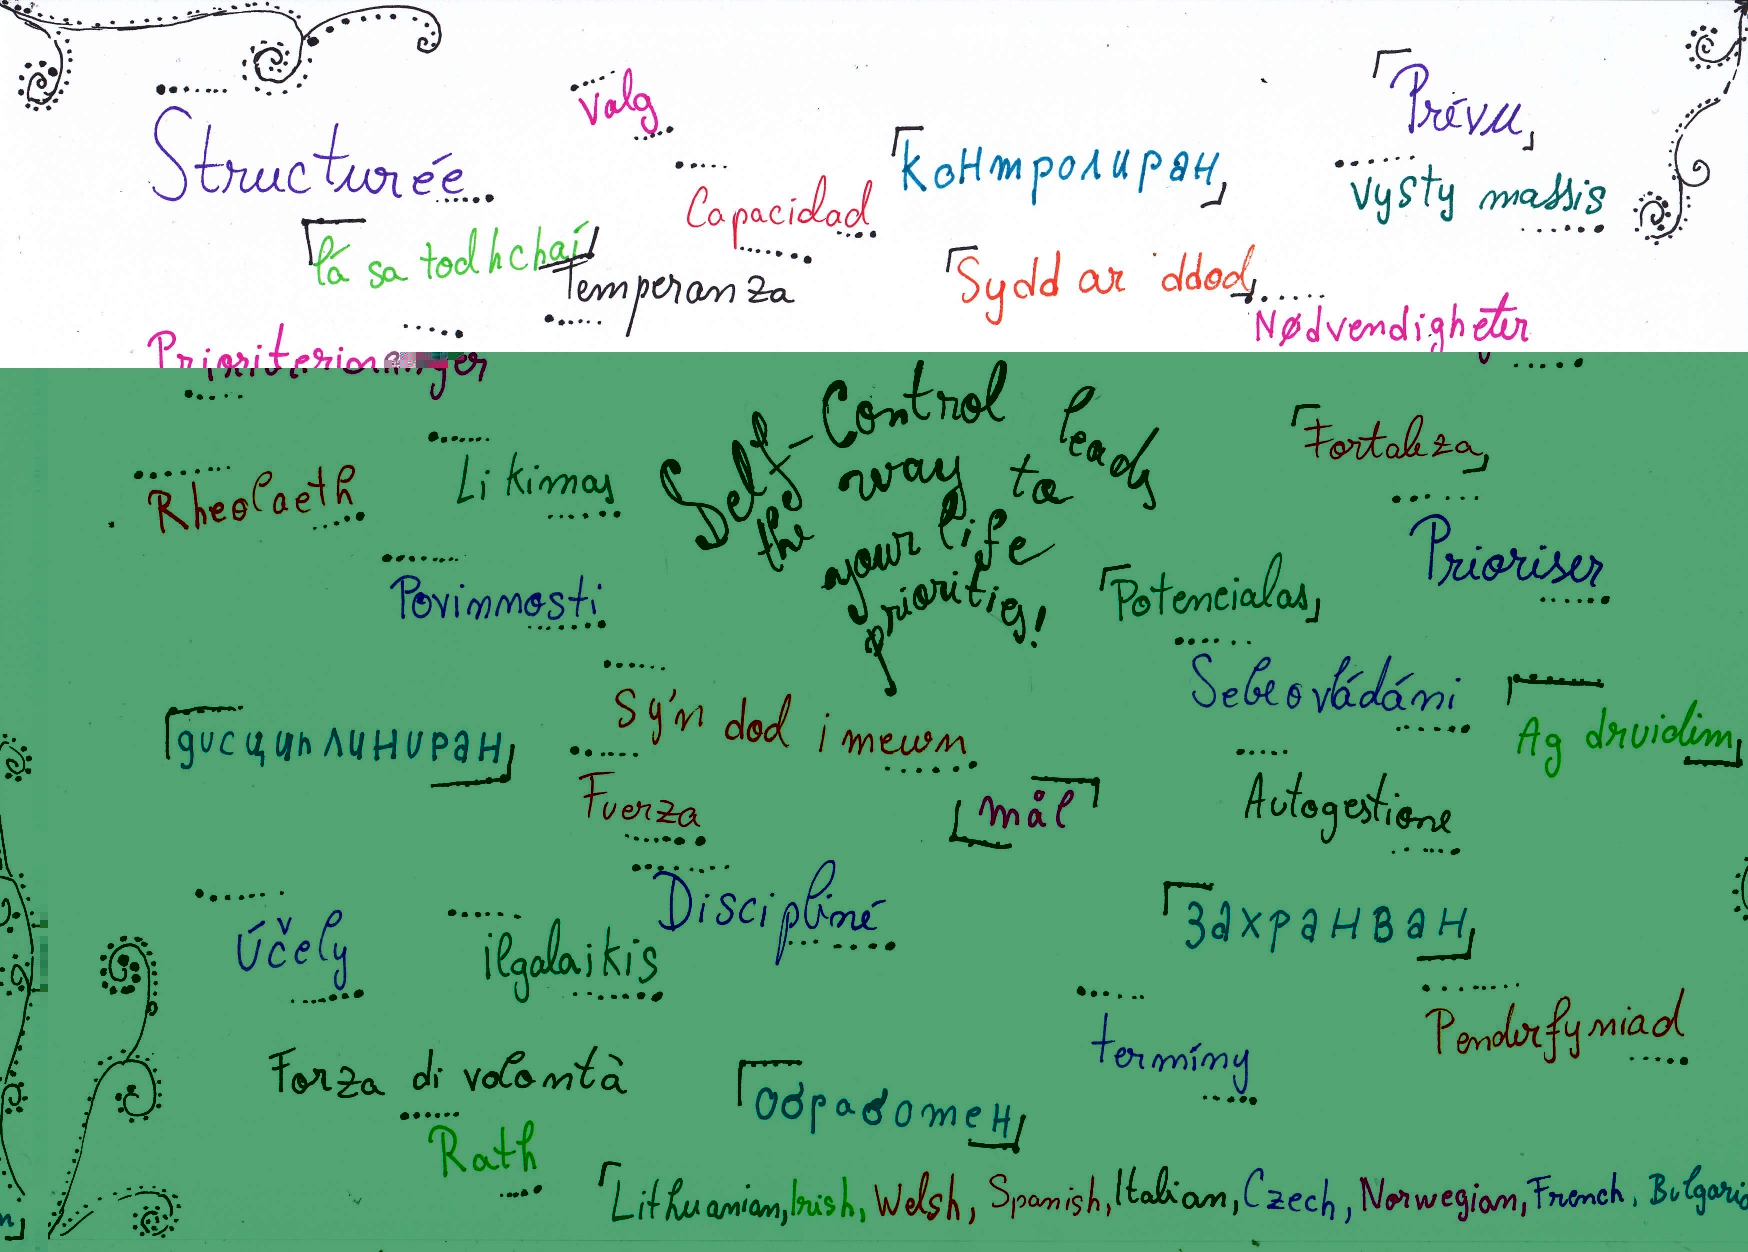 Valg
Prévu
Structurée
контролиран
Capacidad
vysty massis
lá sa todhchaí
Temperanza
Sydd ar ddod
Nødvendigheter
Prioriteringer
Self-Control leads
the way to
your life
priorities!
Fortaleza
Rheolaeth
Likimas
Prioriser
Povinnosti
Potencialas
Sebeovládání
Sy'n dod i mewn
дисциплиниран
Ag druidim
Fuerza
mål
Autogestione
Discipliné
Účely
ilgalaikis
Захранван
termíny
Penderfyniad
Forza di volontà
Обработен
Rath
Lithuanian, Irish, Welsh, Spanish, Italian, Czech, Norwegian, French, Bulgaria